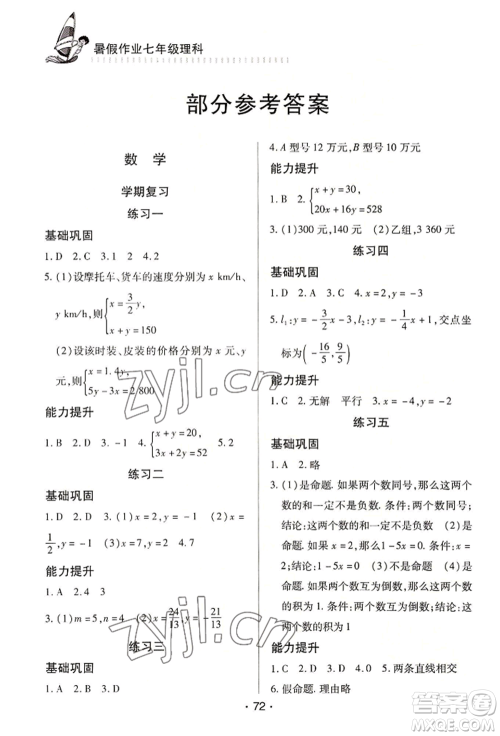 暑假作业七年级理科
部分参考答案
数 学
学期复习
练习一
基础巩固
1. D 2. C 3. D 4. 2
5. (1)设摩托车、货车的速度分别为 x km/h,
y km/h,则{x=3/2y, x+y=150
(2)设该时装、皮装的价格分别为 x 元、y
元,则{x=1.4y, 5x-2y=2 800
能力提升
1. B 2. D 3. -1 4. {x+y=20, 3x+2y=52
练习二
基础巩固
1. D 2. D 3. (1)x=2,y=-1 (2)x=
1/2,y=-1
能力提升
1. A 2. 4
3. (1)m=5,n=4 (2)x=24/13,y=-21/13
练习三
基础巩固
1. A 2. A 3. 2
4. A 型号 12 万元,B 型号 10 万元
能力提升
1. B 2. {x+y=30, 20x+16y=528
3. (1)300 元,140 元 (2)乙组,3 360 元
练习四
基础巩固
1. D 2. C 3. A 4. x=2,y=-3
5. l₁:y=-3/2x-3,l₂:y=-1/4x+1,交点坐
标为(-16/5,9/5)
能力提升
1. C 2. 无解 平行 3. x=-4,y=-2
练习五
基础巩固
1. A 2. 略
3. (1)是命题. 如果两个数同号,那么这两个
数的和一定不是负数. 条件:两个数同号;
结论:这两个数的和一定不是负数 (2)是
命题. 如果x=2,那么1-5x=0. 条件:x=
2;结论:1-5x=0 (3)不是命题 (4)是
命题. 如果两个数互为倒数,那么这两个数
的积为 1. 条件:两个数互为倒数;结论:这
两个数的积为 1
能力提升
1. C 2. D 3. A 4. C 5. 两条直线相交
6. 假命题. 理由略
· 72 ·
zyjl.cn
zyjl.cn